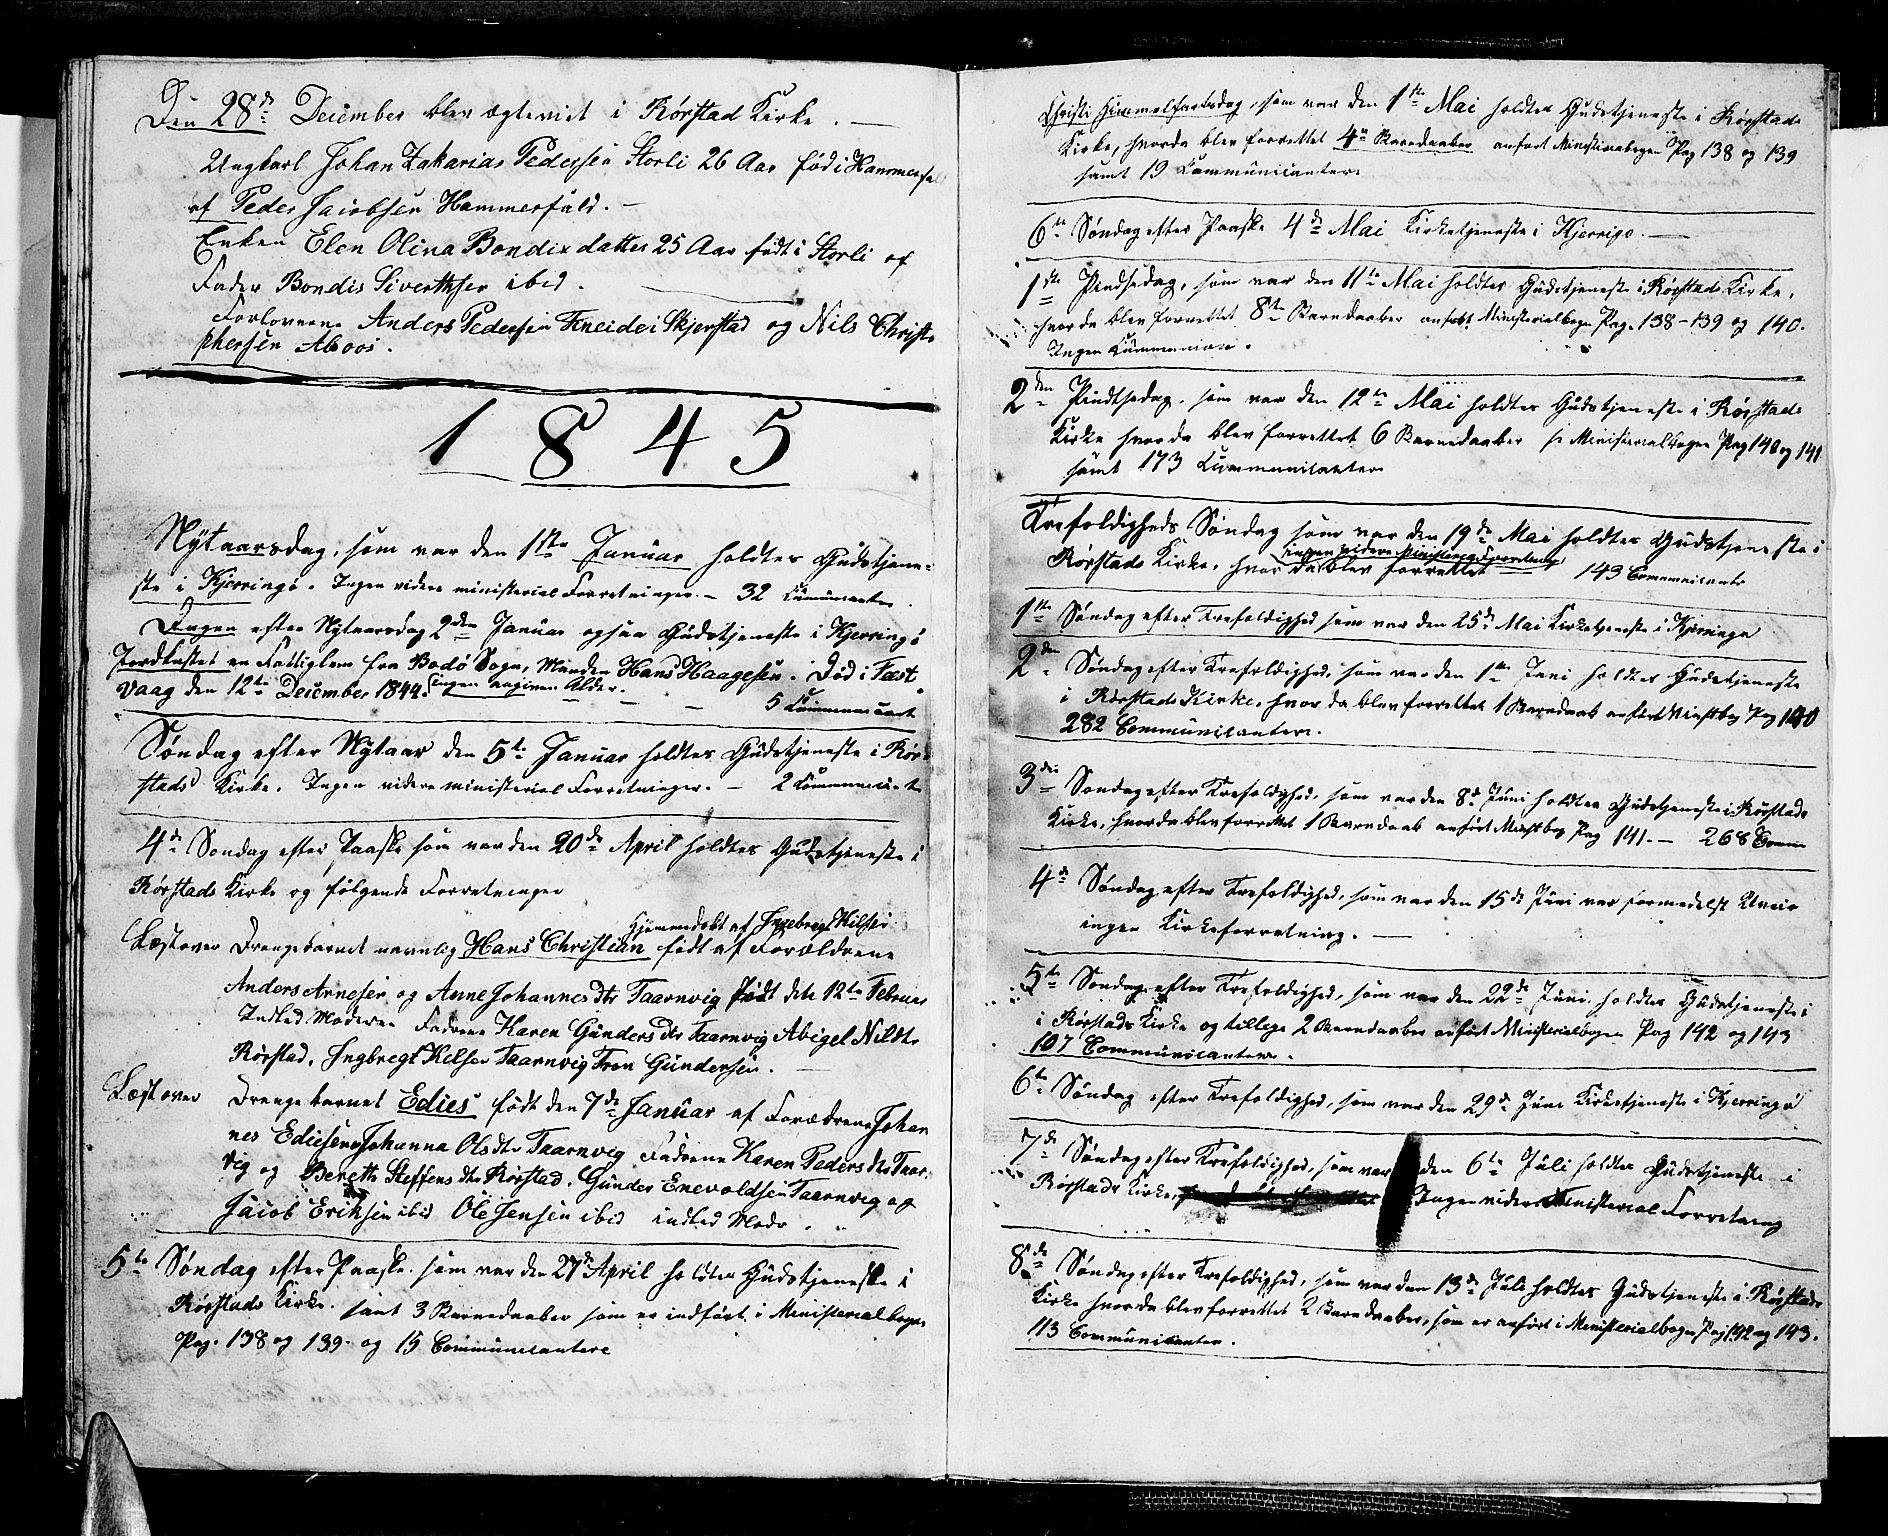 Den 28de December blev ægteviet i Rørstad Kirke. —
Ungkarl Johan Zakarias Pedersen Storli 26 Aar født i Hammerfal
af Peder Jacobsen Hammerfald. —
Enken Elen Olina Bondisdatter 25 Aar født i Storli af
Fader Bondis Siverthsen ibid.
Forloverne Anders Pedersen Kneide i Skjerstad og Nils Christo
phersen Aboos.
1845
Nytaarsdag, som var den 1ste Januar holdtes Gudstjene-
ste i Kjerringø. Ingen videre ministerial Forretninger. — 32 Communicanter.
Dagen efter Nytaarsdag 2den Januar ogsaa Gudstjeneste i Kjerringø
Jordkastet en Fattiglem fra Bodø Sogn, Manden Hans Haagesen. Død i Fæst
vaag den 12te December 1844. ingen angiven Alder.
5 Communicant
Søndag efter Nytaar den 5te Januar holdtes Gudstjeneste i Rør
stads Kirke. Ingen videre ministerial Forretninger. — 2 Communicant
4de Søndag efter Paaske som var den 20de April holdtes Gudstjeneste i
Rørstads Kirke og følgende Forretninger
hjemmedøbt af Ingebregt Kilsen
Læst over Drengebarnet navnlig Hans Christian født af Forældrene
Anders Arnesen og Anne Johannesdtr Taarnvig født den 12te Februar
Indled Moderen Fadrene Karen Gundersdtr Taarnvig Abigel Nildtr
Rørstad, Ingbregt Kilsen Taarnvig Tron Gundersen.
Læst over Drengebarnet Edies født den 7de Januar af Forældrene Johan
nes Ediesen Johanna Olsdtr Taarnvig Fadrene Karen Pedersdtr Taar
vig og Bereth Steffensdtr Rørstad. Gunder Enevoldsen Taarnvig og
Jacob Eriksen ibid Ole Jensen ibid indled Modr.
5te Søndag efter Paaske som var den 27de April holdtes Gudstjeneste i
Rørstads Kirke. samt 3 Barnedaaber som er indført i Ministerialbogen
Pag. 138 og 139. og 15 Communicantere
Christi Himmelfartsdag, som var den 1ste Mai holdtes Gudstjeneste i Rørstads
Kirke, hvorda blev forrettet 4re Barndaaber anført Ministrabogen Pag 138 og 139
samt 19 Communicanter.
6te Søndag efter Paaske 4de Mai Kirketjeneste i Kjerrigø. —
1ste Pindsedag, som var den 11te Mai holdtes Gudstjeneste i Rørstads Kirke,
hvorda blev forrettet 8te Barndaaber anført Ministerialbogen Pag. 138-139 og 140.
Ingen Communion.
2den Pindtsedag, som var den 12te Mai holdtes Gudstjeneste i Rørstads
Kirke hvorda blev forrettet 6 Barnedaaber se Ministerialbogen Pag 140 og 141
samt 173 Communicanter
Trefoldigheds Søndag som var den 19de Mai holdtes Gudstjeneste i
ingen videre Ministerial Forretning
Rørstads Kirke, hvor da blev forrettet 149 Communicanter
1ste Søndag efter Trefoldighed som var den 25de Mai Kirketjeneste i Kjerringø
2den Søndag efter Trefoldighed, som var den 1ste Juni holdtes Gudstjeneste
i Rørstads Kirke, hvor da blev forrettet 1 Barndaab anført Minstbog Pag 140
282 Communicantere.
3die Søndag efter Trefoldighed, som var den 8de Juni holdtes Gudstjeneste i Rørstads
Kirke, hvorda blev forrettet 1 Barndaab anført Minstbog Pag 141. — 268 Comm
4de Søndag efter Trefoldighed, som var den 15de Juni var formedelst Uveir
ingen Kirkeforretning. —
5te Søndag efter Trefoldighed, som var den 22de Juni holdtes Gudstjeneste i
i Rørstads Kirke og tillige 2 Barndaaber anført Ministerialbogen Pag 142 og 143
107 Communicantere.
6te Søndag efter Trefoldighed, som var den 29de Juni Kirketjeneste i Kjerringø
7de Søndag efter Trefoldighed, som var den 6te Juli holdtes Gudstjeneste i
Rørstads Kirke, Ingen videre Ministerial Forretning
8de Søndag efter Trefoldighed, som var den 13de Juli holdtes Gudstjeneste i Rørstads
Kirke hvorda blev forrettet 2 Barndaaber, som er anført i Ministerialbogen Pag 142 og 143.
113 Communicanter.